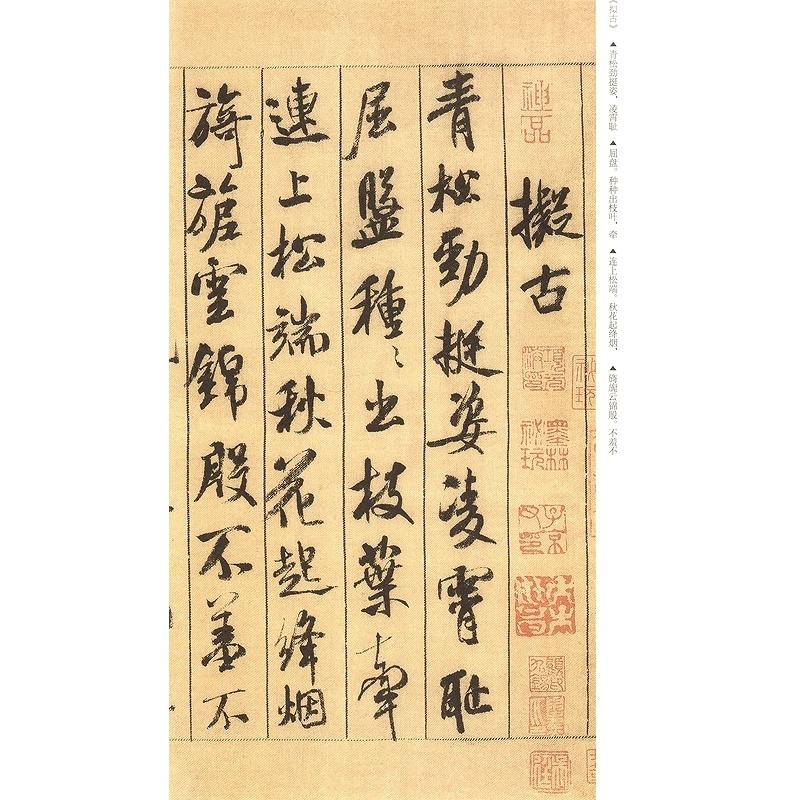 《拟古》 ▲青松劲挺姿，凌霄耻 ▲屈盘。种种出枝叶，牵 ▲连上松端。秋花起绛烟， ▲旖旎云锦殷。不羞不
神品
擬古
項元汴印
墨林秘玩
子京父印
青松勁挺姿凌霄耻
屈盤種〻出枝葉牽
連上松端秋花起絳烟
旖旎雲錦殷不羞不